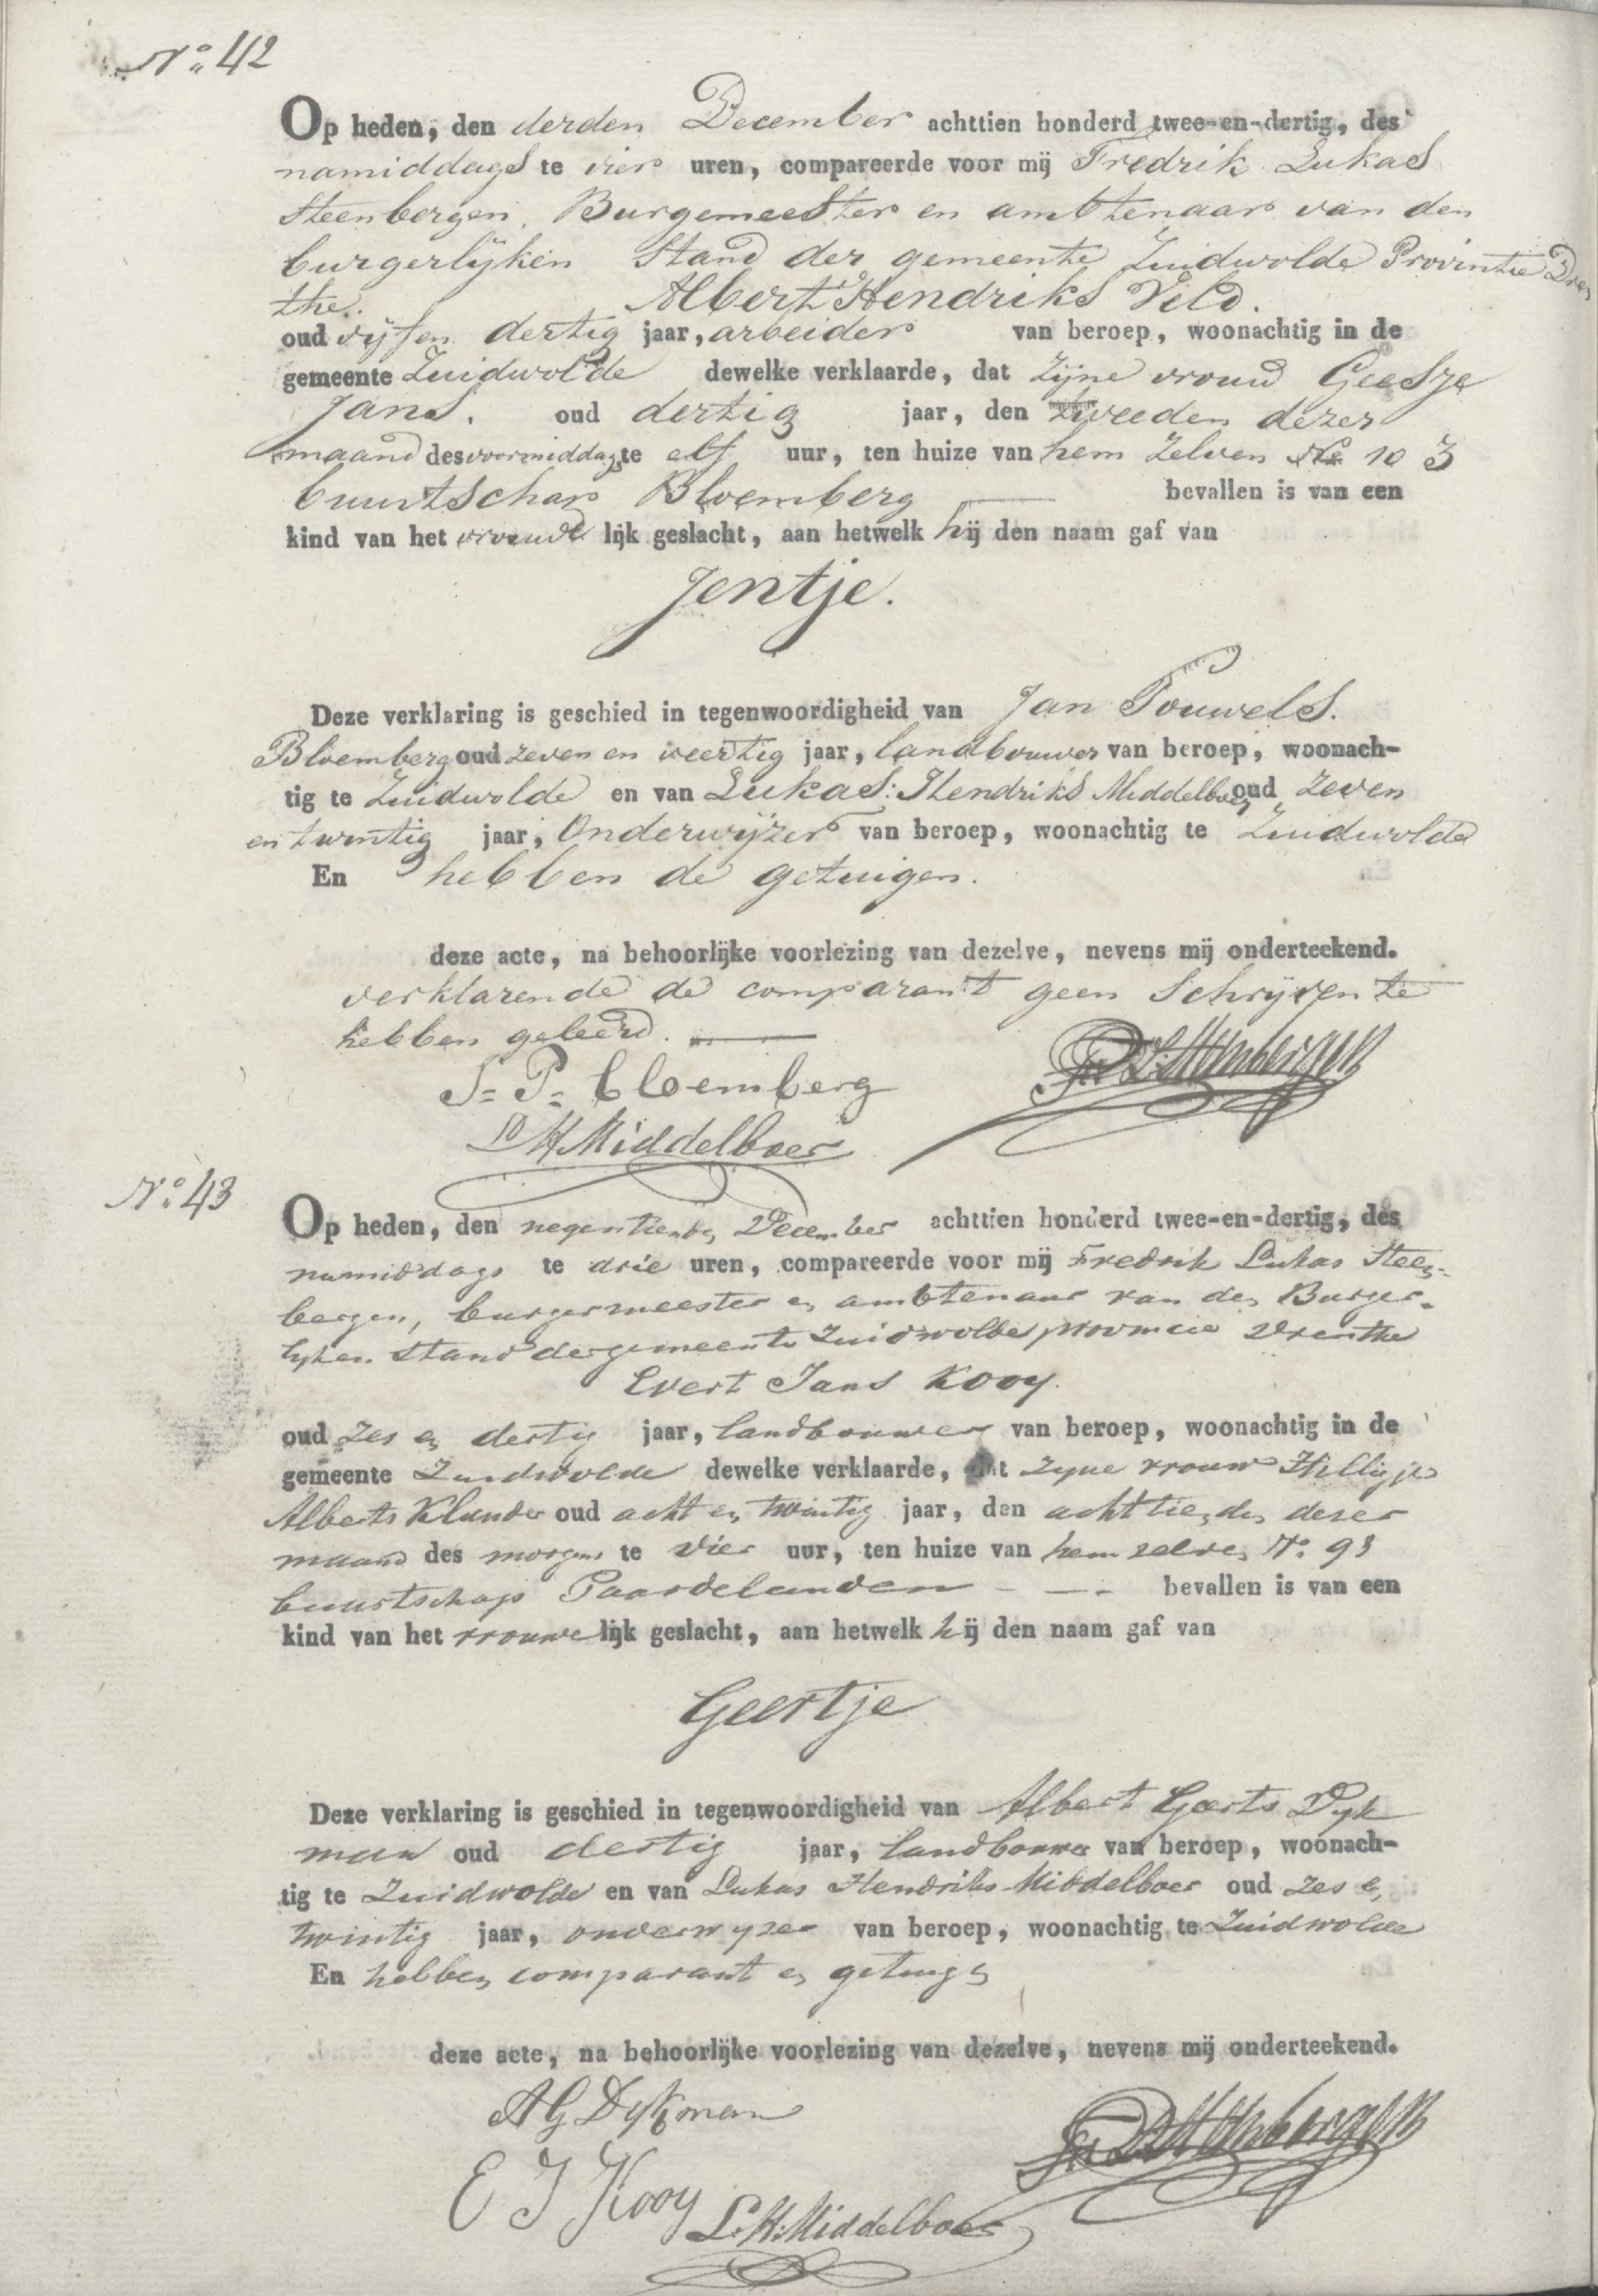 No. 42
Op heden, den derden December achttien honderd twee-en-dertig, des
namiddags te vier uren, compareerde voor mij Fredrik Lukas
Steenbergen, Burgemeester en ambtenaar van den
burgerlijken Stand der gemeente Zuidwolde Provintie Dren
the. Albert Hendriks Veld.
oud vijf en dertig jaar, arbeider van beroep, woonachtig in de
gemeente Zuidwolde dewelke verklaarde, dat zijne vrouw Geesje
Jans. oud dertig jaar, den tweeden dezer
maand des voormiddags te elf uur, ten huize van hem zelven No 103
buurtschap Bloemberg bevallen is van een
kind van het vrouwelijk geslacht, aan hetwelk hij den naam gaf van
Jentje.
Deze verklaring is geschied in tegenwoordigheid van Jan Pouwels.
Bloemberg oud zeven en veertig jaar, landbouwer van beroep, woonach-
tig te Zuidwolde en van Lukas: Hendriks Middelboer oud zeven
en twintig jaar, Onderwijzer van beroep, woonachtig te Zuidwolde
En hebben de getuigen.
deze acte, na behoorlijke voorlezing van dezelve, nevens mij onderteekend.
verklarende de comparant geen Schrijven te
hebben geleerd.
J= P= bloemberg
L H Middelboer
No. 43
Op heden, den negentienden December achttien honderd twee-en-dertig, des
namiddags te drie uren, compareerde voor mij Fredrik Lukas Steen-
bergen, burgermeester en ambtenaar van den Burger-
lyken stand der gemeente Zuidwolde provincie Drenthe
Evert Jans Kooy.
oud zes en dertig jaar, landbouwer van beroep, woonachtig in de
gemeente Zuidwolde dewelke verklaarde, dat zyne vrouw Hilligje
Alberts Klunder oud acht en twintig jaar, den achttienden dezer
maand des morgens te vier uur, ten huize van hem zelven No. 93
buurtschap Paardelanden bevallen is van een
kind van het vrouwelijk geslacht, aan hetwelk hij den naam gaf van
Geertje
Deze verklaring is geschied in tegenwoordigheid van Albert Geerts Dyk
man oud dertig jaar, landbouwer van beroep, woonach-
tig te Zuidwolde en van Lukas Hendriks Middelboer oud zes en
twintig jaar, onderwyzer van beroep, woonachtig te Zuidwolde
En hebben comparant en getuigen
deze acte, na behoorlijke voorlezing van dezelve, nevens mij onderteekend.
A G Dykman
E J Kooy
L. H. Middelboer